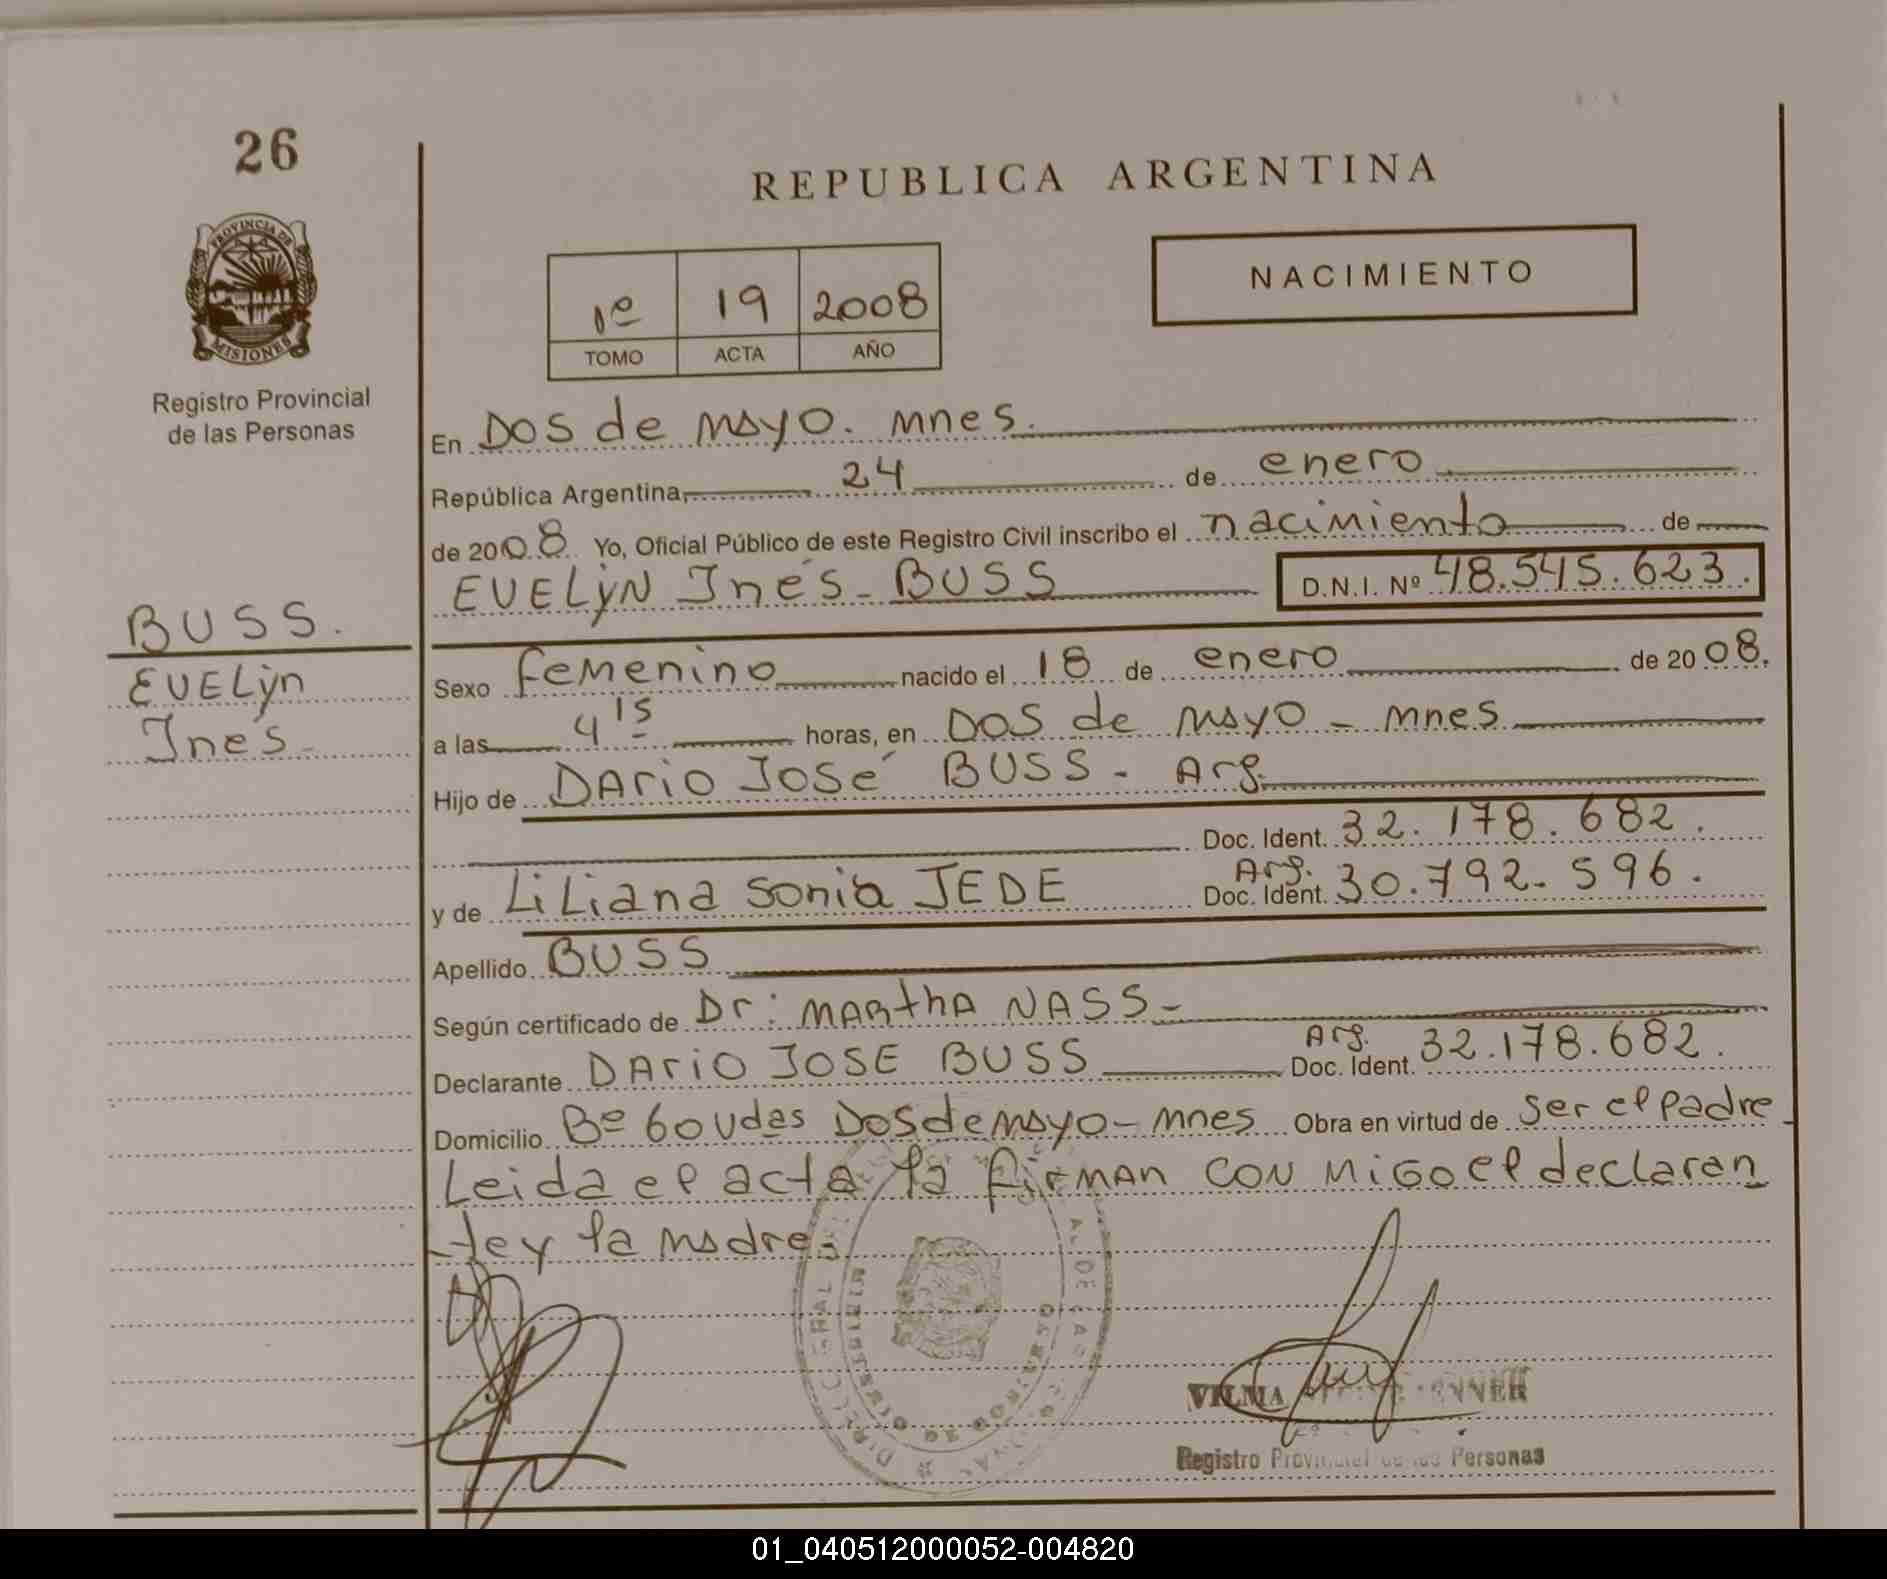 26
REPUBLICA ARGENTINA
NACIMIENTO
PROVINCIA DE
MISIONES
1º 19 2008
TOMO ACTA AÑO
Registro Provincial
de las Personas
En Dos de mayo. mnes.
República Argentina, 24 de enero
de 2008 Yo, Oficial Público de este Registro Civil inscribo el nacimiento de
EVELyN Inés - BUSS D.N.I. Nº 48.545.623.
BUSS.
EVELyn
Inés -
Sexo femenino nacido el 18 de enero de 2008.
a las 4 15 horas, en Dos de mayo - mnes
Hijo de DArio José BUSS - Arg.
Doc. Ident. 32.178.682.
y de Liliana Sonia JEDE Arg. Doc. Ident. 30.792.596.
Apellido BUSS
Según certificado de Dr: MARthA NASS -
Declarante DAriO JOSE BUSS Arg. Doc. Ident. 32.178.682.
Domicilio Bº 60 Vdas Dos de mayo - mnes Obra en virtud de ser el padre -
Leida el acta la firman con migo el declaran
te y la madre.
VILMA
Registro Personas
01_040512000052-004820